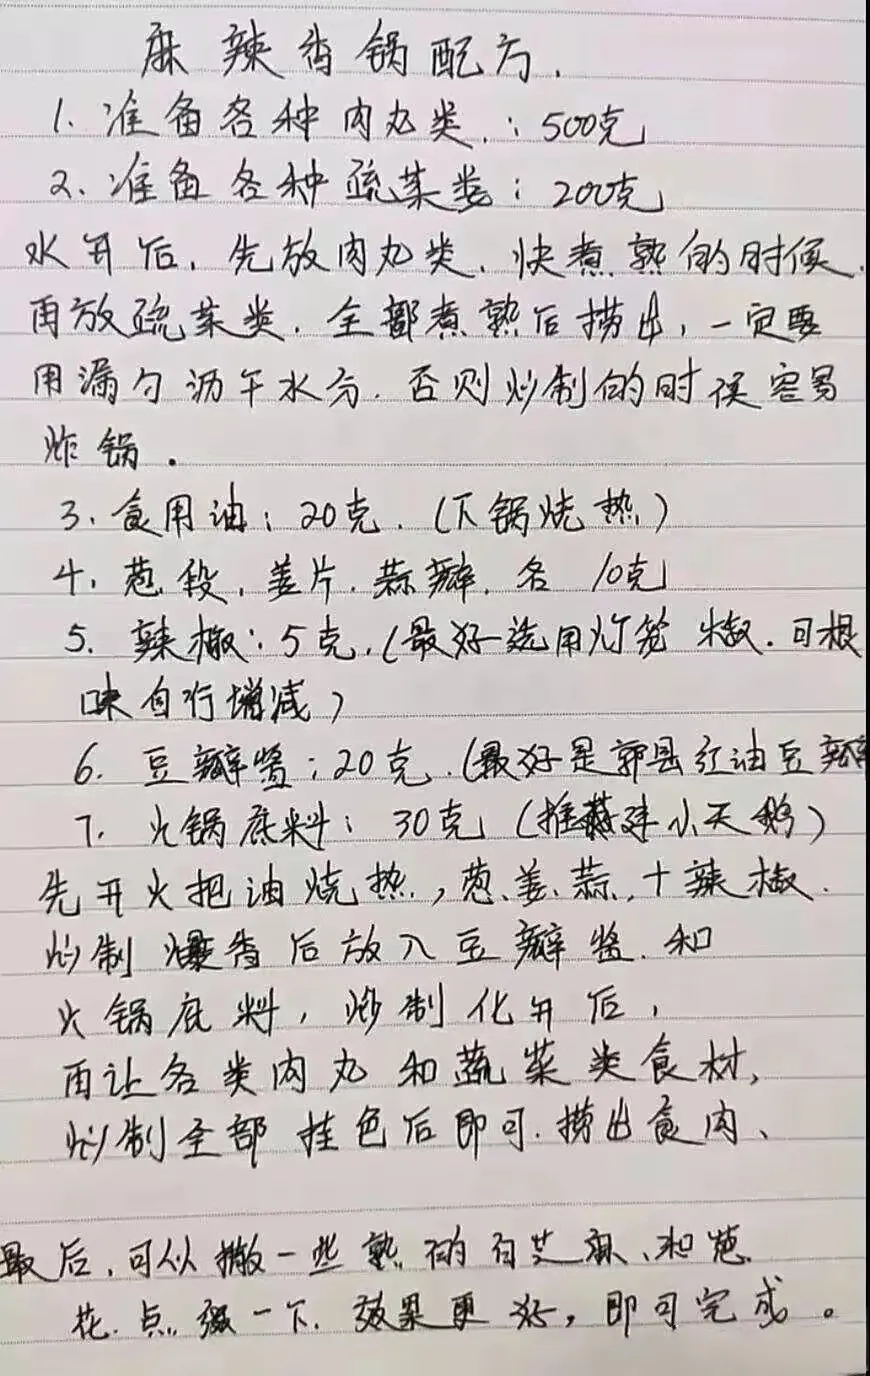 麻辣香锅配方.
1. 准备各种肉丸类.: 500克
2. 准备各种蔬菜类: 200克
水开后, 先放肉丸类, 快煮熟的时候.
再放蔬菜类, 全部煮熟后捞出, 一定要
用漏勺沥干水分. 否则炒制的时候容易
炸锅.
3. 食用油: 20克. (下锅烧热)
4. 葱段, 姜片, 蒜瓣, 各 10克
5. 辣椒: 5克. (最好选用灯笼椒. 可根
味自行增减)
6. 豆瓣酱: 20克. (最好是郫县红油豆瓣
7. 火锅底料: 30克 (推荐 小天鹅)
先开火把油烧热, 葱、姜、蒜, 十辣椒.
炒制爆香后放入豆瓣酱. 和
火锅底料, 炒制化开后,
再让各类肉丸和蔬菜类食材,
炒制全部挂色后即可. 捞出食肉、
最后, 可以撒一些熟的白芝麻、和葱
花. 点缀一下. 效果更好, 即可完成。